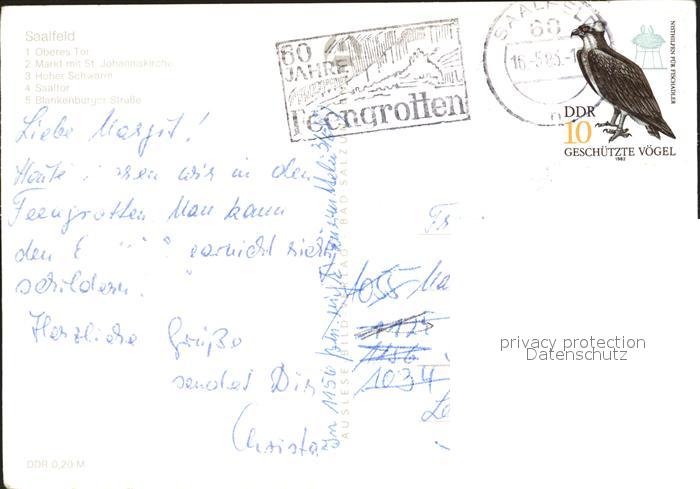 Saalfeld
1 Oberes Tor
2 Markt mit St. Johanniskirche
3 Hoher Schwarm
4 Saaltor
5 Blankenburger Straße
60
JAHRE
Feengrotten
SAALFELD
68
16.-5.85.-1
NISTHILFEN FÜR FISCHADLER
DDR
10
GESCHÜTZTE VÖGEL
1982
Liebe Margit!
Heute wir in den
Feengrotten. Man kann
den garnicht
schildern.
Herzliche Grüße
sendet Dir
Christa
AUSLESE-BILD-VERLAG BAD SALZUNGEN
1156
1055
1125
1156
1034
privacy protection
Datenschutz
DDR 0,20 M